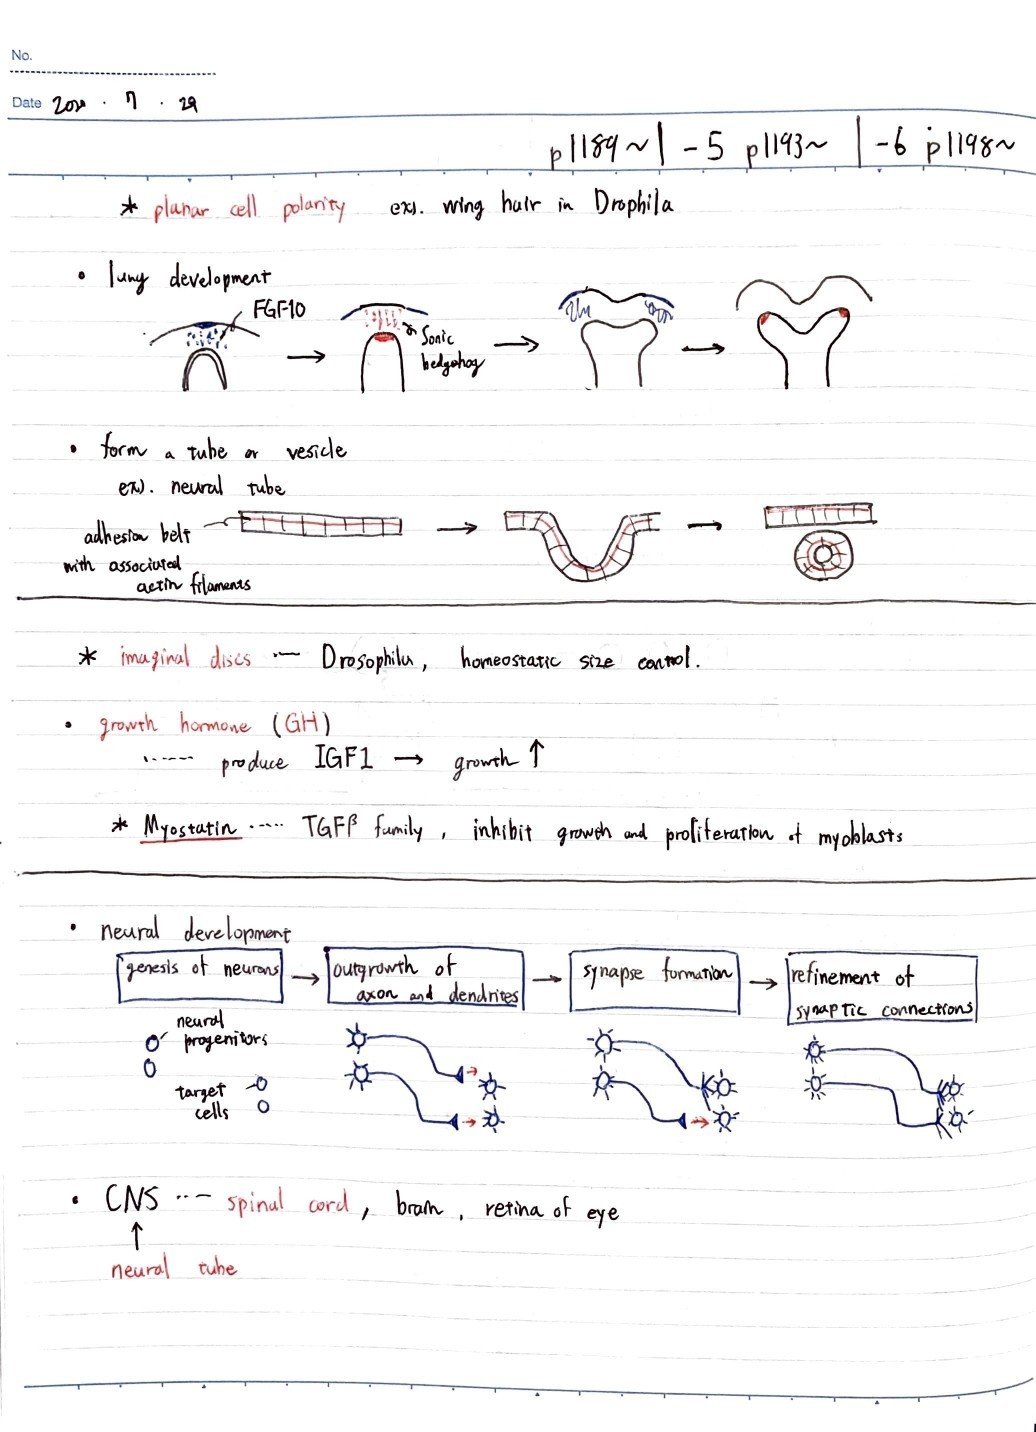 No.
Date 2020 . 7 . 29
p1189~ | -5 p1193~ | -6 p1198~
* planar cell polarity ex). wing hair in Drophila
• lung development
FGF10
Sonic
hedgehog
• form a tube or vesicle
ex). neural tube
adhesion belt
with associated
actin filaments
* imaginal discs ···— Drosophila, homeostatic size control.
• growth hormone (GH)
······ produce IGF1 → growth ↑
* Myostatin ····· TGFβ family, inhibit growth and proliferation of myoblasts
• neural development
genesis of neurons → outgrowth of → synapse formation → refinement of
axon and dendrites
synaptic connections
neural
progenitors
target
cells
• CNS ···— spinal cord, brain, retina of eye
↑
neural tube